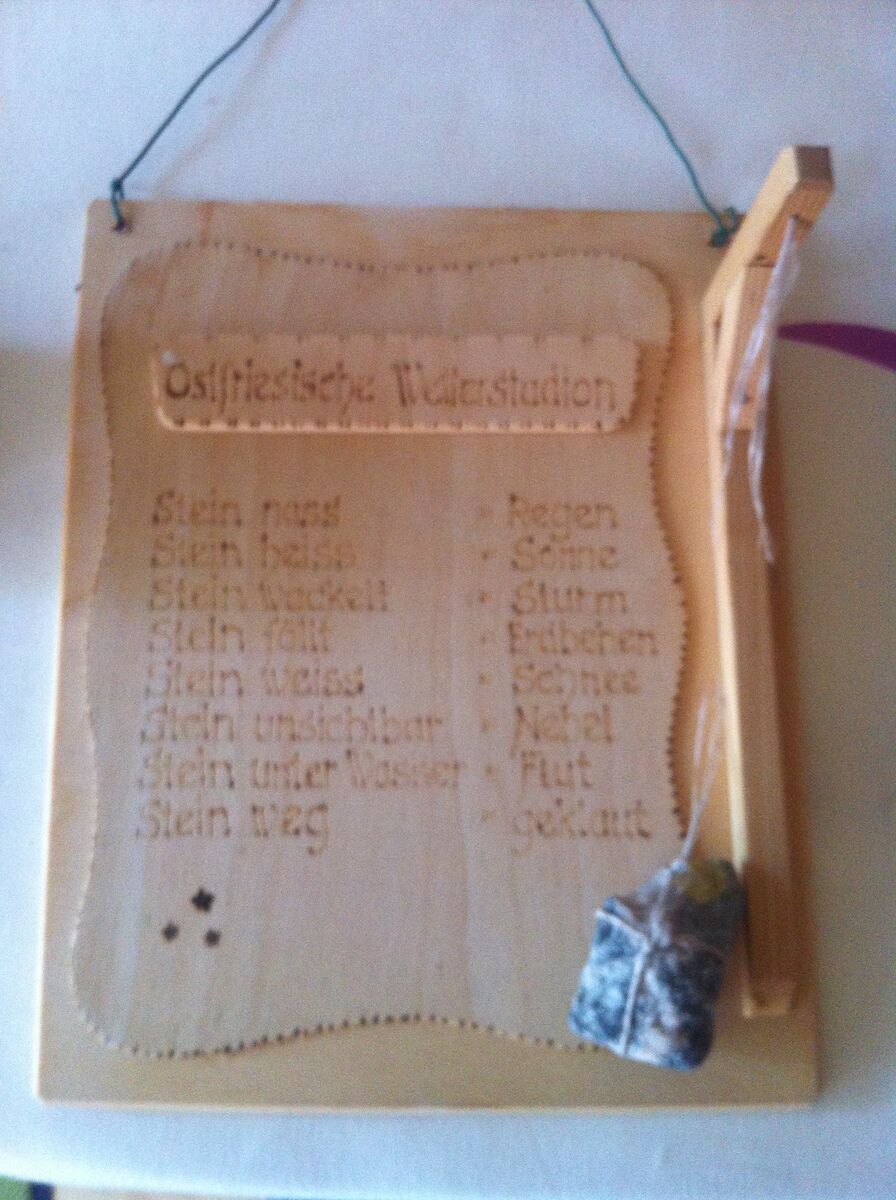 Ostfriesische Wetterstadion
Stein nass = Regen
Stein heiss = Sonne
Stein wackelt = Sturm
Stein fällt = Erdbeben
Stein weiss = Schnee
Stein unsichtbar = Nebel
Stein unter Wasser = Flut
Stein weg = geklaut